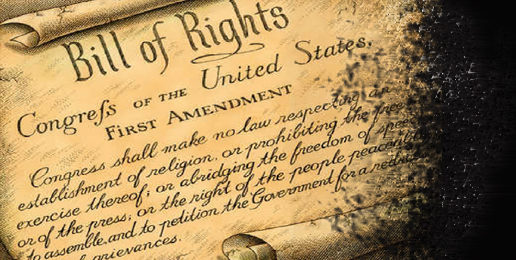 Bill of Rights
Congreſs OF THE United States,
FIRST AMENDMENT
Congress shall make no law respecting an
establishment of religion, or prohibiting the free
exercise thereof; or abridging the freedom of speech
or of the press; or the right of the people peaceably
to assemble, and to petition the Government for a
of grievances.